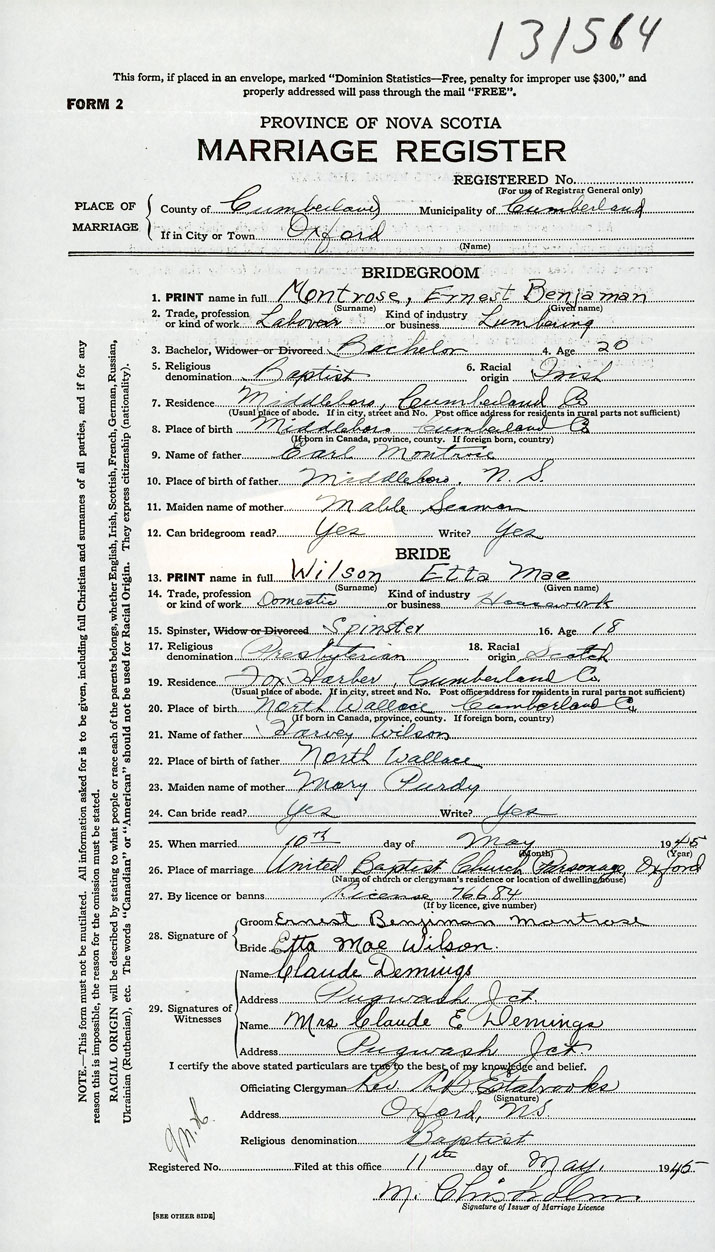 131564
This form, if placed in an envelope, marked "Dominion Statistics—Free, penalty for improper use $300," and
properly addressed will pass through the mail "FREE".
FORM 2
PROVINCE OF NOVA SCOTIA
MARRIAGE REGISTER
REGISTERED No.
(For use of Registrar General only)
PLACE OF MARRIAGE
County of Cumberland Municipality of Cumberland
If in City or Town Oxford
(Name)
BRIDEGROOM
1. PRINT name in full Montrose, Ernest Benjaman
(Surname) (Given name)
2. Trade, profession or kind of work Laborer Kind of industry or business Lumbering
3. Bachelor, Widower or Divorced Bachelor 4. Age 20
5. Religious denomination Baptist 6. Racial origin Irish
7. Residence Middleboro, Cumberland Co.
(Usual place of abode. If in city, street and No. Post office address for residents in rural parts not sufficient)
8. Place of birth Middleboro Cumberland Co.
(If born in Canada, province, county. If foreign born, country)
9. Name of father Carl Montrose
10. Place of birth of father Middleboro, N.S.
11. Maiden name of mother Mable Seaman
12. Can bridegroom read? Yes Write? Yes
BRIDE
13. PRINT name in full Wilson Etta Mae
(Surname) (Given name)
14. Trade, profession or kind of work Domestic Kind of industry or business Housework
15. Spinster, Widow or Divorced Spinster 16. Age 18
17. Religious denomination Presbyterian 18. Racial origin Scotch
19. Residence Fox Harber, Cumberland Co.
(Usual place of abode. If in city, street and No. Post office address for residents in rural parts not sufficient)
20. Place of birth North Wallace Cumberland Co.
(If born in Canada, province, county. If foreign born, country)
21. Name of father Harvey Wilson
22. Place of birth of father North Wallace
23. Maiden name of mother Mary Purdy
24. Can bride read? Yes Write? Yes
25. When married 10th day of May 1945
(Month) (Year)
26. Place of marriage United Baptist Church Parsonage, Oxford
(Name of church or clergyman's residence or location of dwelling house)
27. By licence or banns License 76684
(If by licence, give number)
28. Signature of
Groom Ernest Benjiman Montrose
Bride Etta Mae Wilson.
29. Signatures of Witnesses
Name Claude Demings
Address Pugwash Jct.
Name Mrs Claude E Demings
Address Pugwash Jct
I certify the above stated particulars are true to the best of my knowledge and belief.
Officiating Clergyman Rev Estabrooks
(Signature)
Address Oxford, N.S.
Religious denomination Baptist
Registered No. Filed at this office 11th day of May, 1945
M. Chisholm
Signature of Issuer of Marriage Licence
[SEE OTHER SIDE]
NOTE.—This form must not be mutilated. All information asked for is to be given, including full Christian and surnames of all parties, and if for any
reason this is impossible, the reason for the omission must be stated.
RACIAL ORIGIN will be described by stating to what people or race each of the parents belongs, whether English, Irish, Scottish, French, German Russian,
Ukrainian (Ruthenian), etc. The words "Canadian" or "American" should not be used for Racial Origin. They express citizenship (nationality).